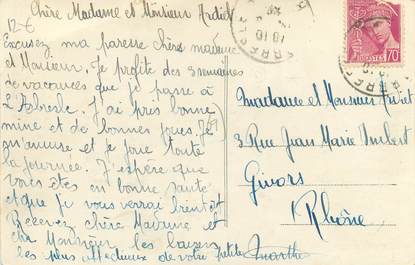 Chère Madame et Monsieur
12-6
Excusez ma paresse chère madame
et Monsieur. Je profite des 3 semaines
de vacances que je passe à
L'Arbresle. J'ai pris bonne
mine et de bonnes joues. Je
m'amuse et je joue toute
la journée. J'espère que
vous êtes en bonne santé
et que je vous verrai bientôt.
Recevez chère Madame et
cher Monsieur les baisers
les plus affectueux de votre petite Marthe
POSTES
70
Madame et Monsieur
3 Rue Jean Marie Imbert
Givors
Rhône